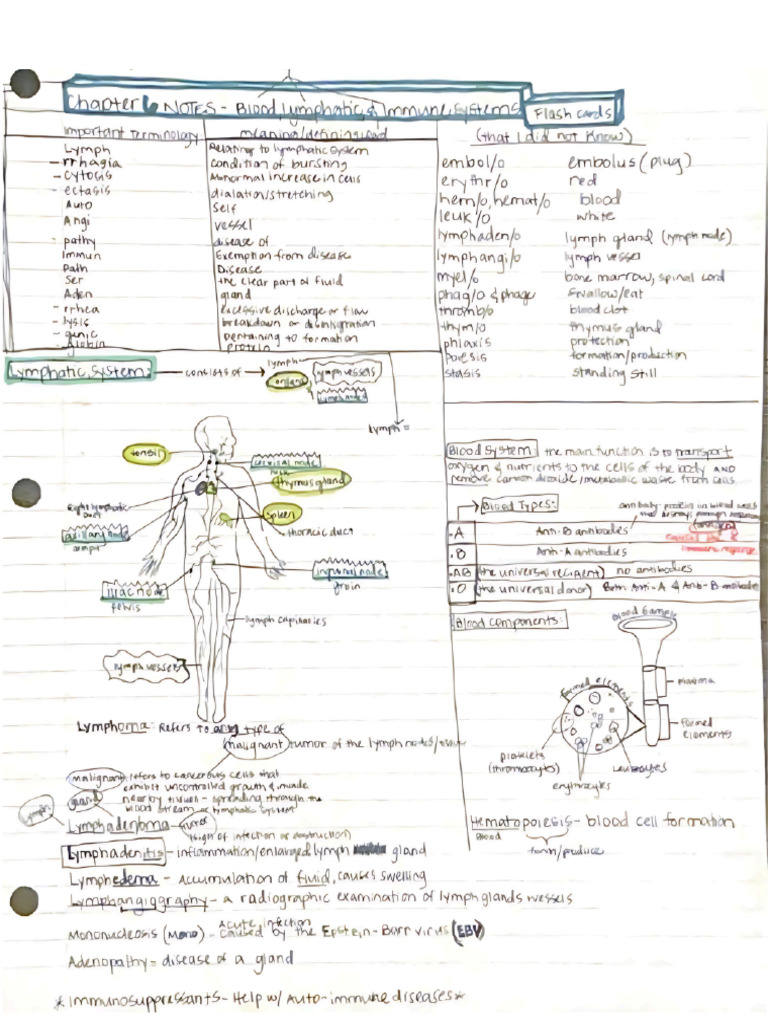 Chapter 6 NOTES - Blood, lymphatic, & Immune Systems
Flash cards
Important Terminology
meaning/defining word
Lymph Relating to lymphatic system
- rrhagia condition of bursting
- cytosis Abnormal increase in cells
- ectasis dialation/stretching
Auto Self
Angi vessel
- pathy disease of
Immun Exemption from disease
Path Disease
Ser the clear part of fluid
Aden gland
- rrhea excessive discharge or flow
- lysis breakdown or disintigration
- genic pertaining to formation
- globin protein
(that I did not know)
embol/o embolus (plug)
erythr/o red
hem/o, hemat/o blood
leuk/o white
lymphaden/o lymph gland (lymph node)
lymphangi/o lymph vessel
myel/o bone marrow, spinal cord
phag/o & phage swallow/eat
thromb/o blood clot
thym/o thymus gland
phlaxis protection
poiesis formation/production
stasis standing still
Lymphatic System:
consists of
lymph
lymph vessels
organs
lymph nodes
lymph =
tonsil
cervical node
neck
thymus gland
Right lymphatic
duct
spleen
thoracic duct
axillary node
armpit
inguinal node
groin
iliac node
pelvis
lymph capillaries
lymph vessels
Blood System: the main function is to transport
oxygen & nutrients to the cells of the body AND
remove carbon dioxide/metabolic waste from cells.
Blood Types:
antibody - protein in blood cells
(antigen)
causes the
immune response
. A Anti-B antibodies
. B Anti-A antibodies
. AB (the universal recipient) no antibodies
. O (the universal donor) Both Anti-A & Anti-B antibodies
Blood Components:
Blood Sample
plasma
formed
elements
formed elements
platelets
(thrombocytes)
erythrocytes
leukocytes
Hematopoiesis - blood cell formation
Blood
form/produce
Lymphoma: Refers to any type of
malignant tumor of the lymph nodes/tissue
malignant refers to cancerous cells that
exhibit uncontrolled growth & invade
nearby tissues - spreading through the
blood stream or lymphatic system
gland
lymph
Lymphadenoma tumor
(sign of infection or obstruction)
Lymphadenitis - inflammation/enlarged lymph gland
Lymphedema - accumulation of fluid, causes swelling
Lymphangiggraphy - a radiographic examination of lymph glands & vessels
acute infection
Mononucleosis (Mono) - caused by the Epstein-Barr virus (EBV)
Adenopathy = disease of a gland
* Immunosuppressants - Help w/ Auto-immune diseases *